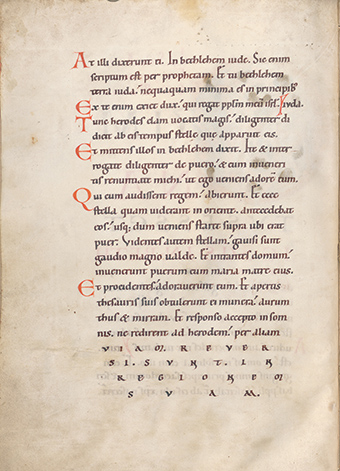 At illi dixerunt ei. In bethlehem iudę. Sic enim
scriptum est per prophetam. Et tu bethlehem
terra iuda. nequaquam minima es in principib;
Ex te enim exiet dux. qui regat pplm meū isrl. Iuda.
Tunc herodes clam uocatis magis. diligenter di
dicit ab eis tempus stellę quę apparuit eis.
Et mittens illos in bethlehem dixit. Ite & inter
rogate diligenter de puero. & cum inueneri
tis renuntiate michi. ut ego ueniens adorē eum.
Qui cum audissent regem. abierunt. Et ecce
stella quam uiderant in oriente. antecedebat
eos. usq; dum ueniens staret supra ubi erat
puer. Videntes autem stellam. gauisi sunt
gaudio magno ualde. Et intrantes domum.
inuenerunt puerum cum maria matre eius.
Et procidentes adorauerunt eum. Et apertis
thesauris suis obtulerunt ei munera. aurum
thus & mirram. Et responso accepto in som
nis. ne redirent ad herodem. per aliam
VIAM. REVER
SI. SVNT. IN
REGIONEM
SVAM.